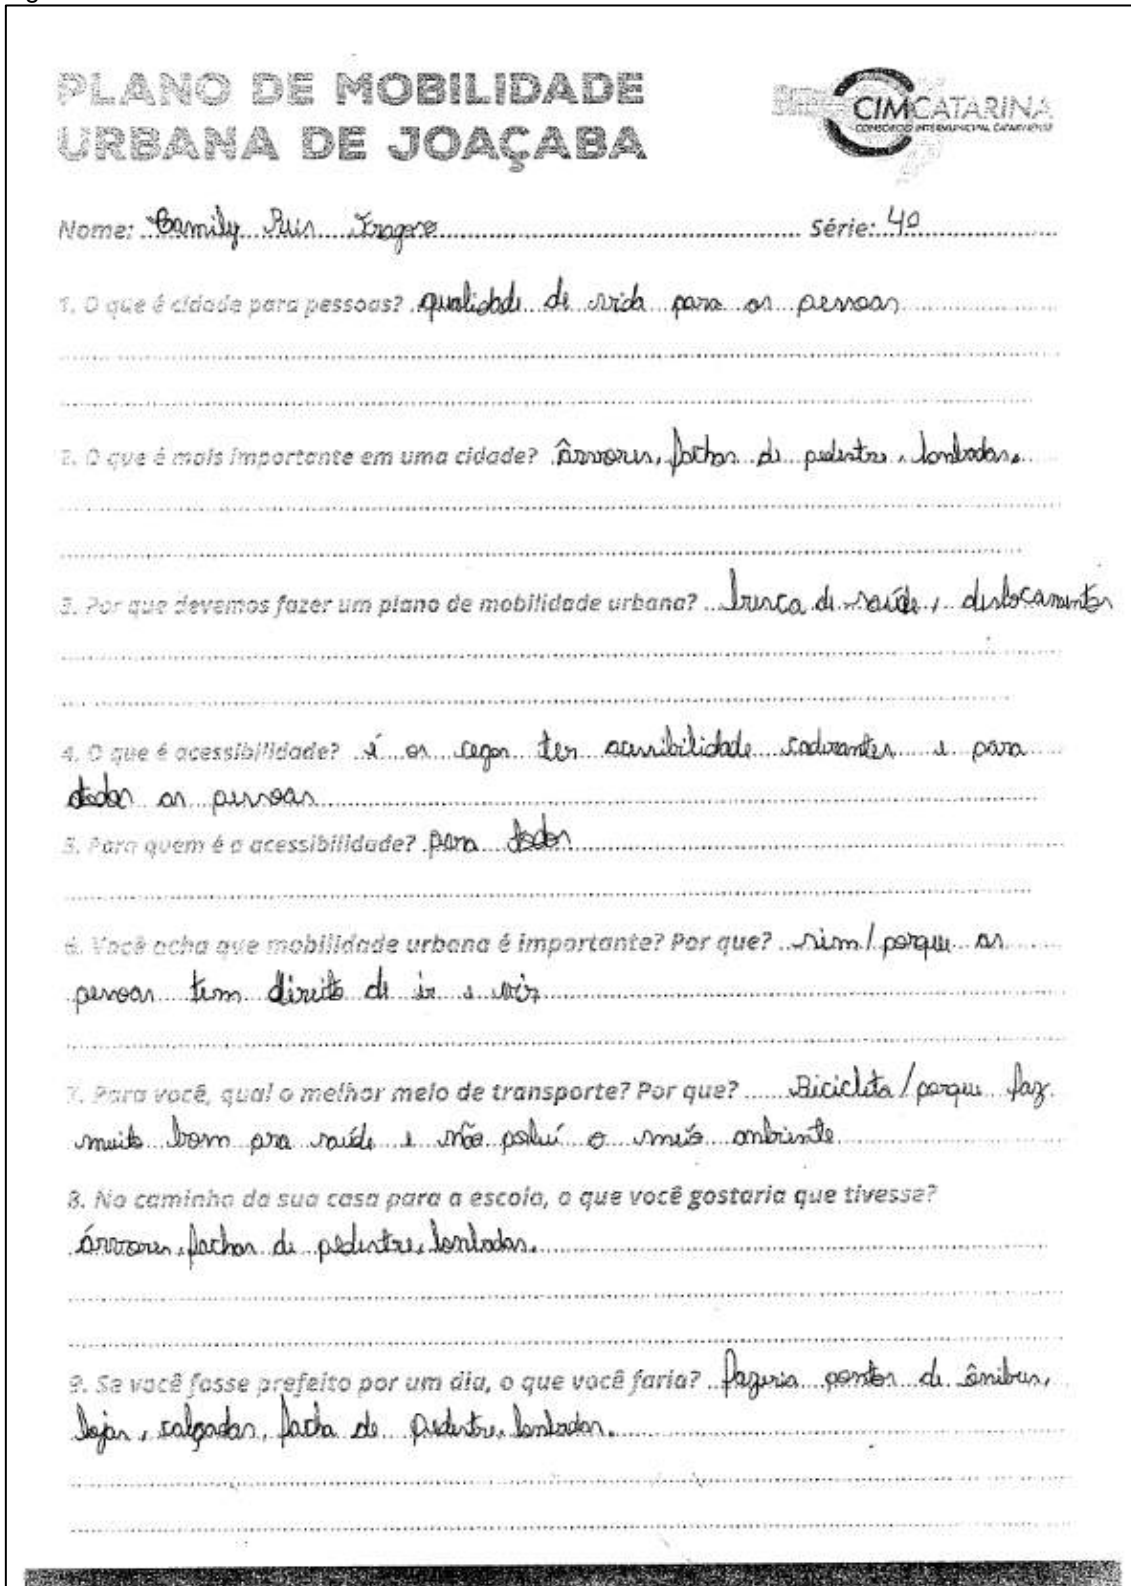 PLANO DE MOBILIDADE
URBANA DE JOAÇABA
CIMCATARINA
CONSÓRCIO INTERMUNICIPAL CATARINENSE
Nome: Camily Série: 4º
1. O que é cidade para pessoas? qualidade de vida para as pessoas
2. O que é mais importante em uma cidade? Ârvores, fachas de pedestre, lombadas.
3. Por que devemos fazer um plano de mobilidade urbana? busca de saúde, deslocamentos
4. O que é acessibilidade? é os cegos ter acessibilidade cadeirantes e para
todas as pessoas
5. Para quem é a acessibilidade? para todos
6. Você acha que mobilidade urbana é importante? Por que? sim/porque as
pessoas tem direito de ir e vir
7. Para você, qual o melhor meio de transporte? Por que? Bicicleta/porque faz
muito bom pra saúde e não poluí o meio ambiente
8. No caminho da sua casa para a escola, o que você gostaria que tivesse?
árvores, fachas de pedestre, lombadas.
9. Se você fosse prefeito por um dia, o que você faria? fazeria pontos de ônibus,
lojas, calçadas, facha de pedestre, lombadas.